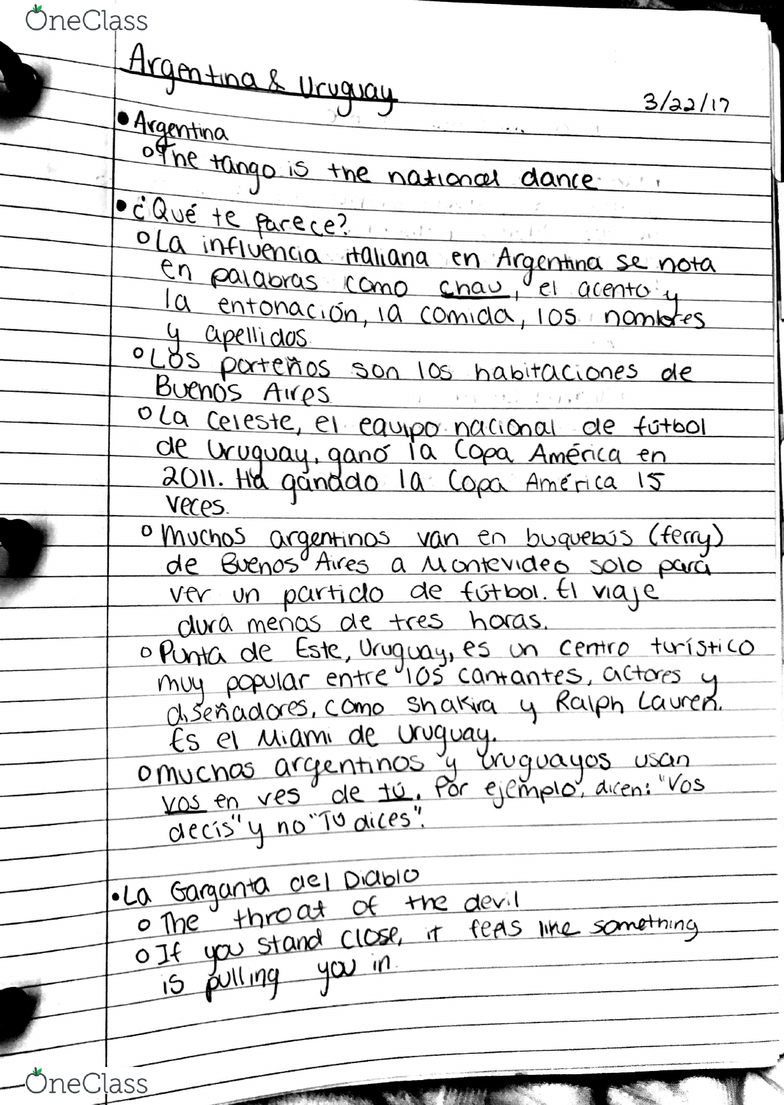 OneClass
Argentina & Uruguay
3/22/17
• Argentina
o The tango is the national dance
• ¿Qué te parece?
o La influencia italiana en Argentina se nota
en palabras como chau, el acento y
la entonación, la comida, los nombres
y apellidos
o Los porteños son los habitaciones de
Buenos Aires
o La celeste, el equipo nacional de fútbol
de Uruguay, ganó la Copa América en
2011. Ha ganado la Copa América 15
veces.
o Muchos argentinos van en buquebús (ferry)
de Buenos Aires a Montevideo solo para
ver un partido de fútbol. El viaje
dura menos de tres horas.
o Punta de Este, Uruguay, es un centro turístico
muy popular entre los cantantes, actores y
diseñadores, como Shakira y Ralph Lauren.
Es el Miami de Uruguay.
o muchos argentinos y uruguayos usan
vos en ves de tú. Por ejemplo, dicen: "Vos
decís" y no "Tú dices".
• La Garganta del Diablo
o The throat of the devil
o If you stand close, it feels like something
is pulling you in.
OneClass